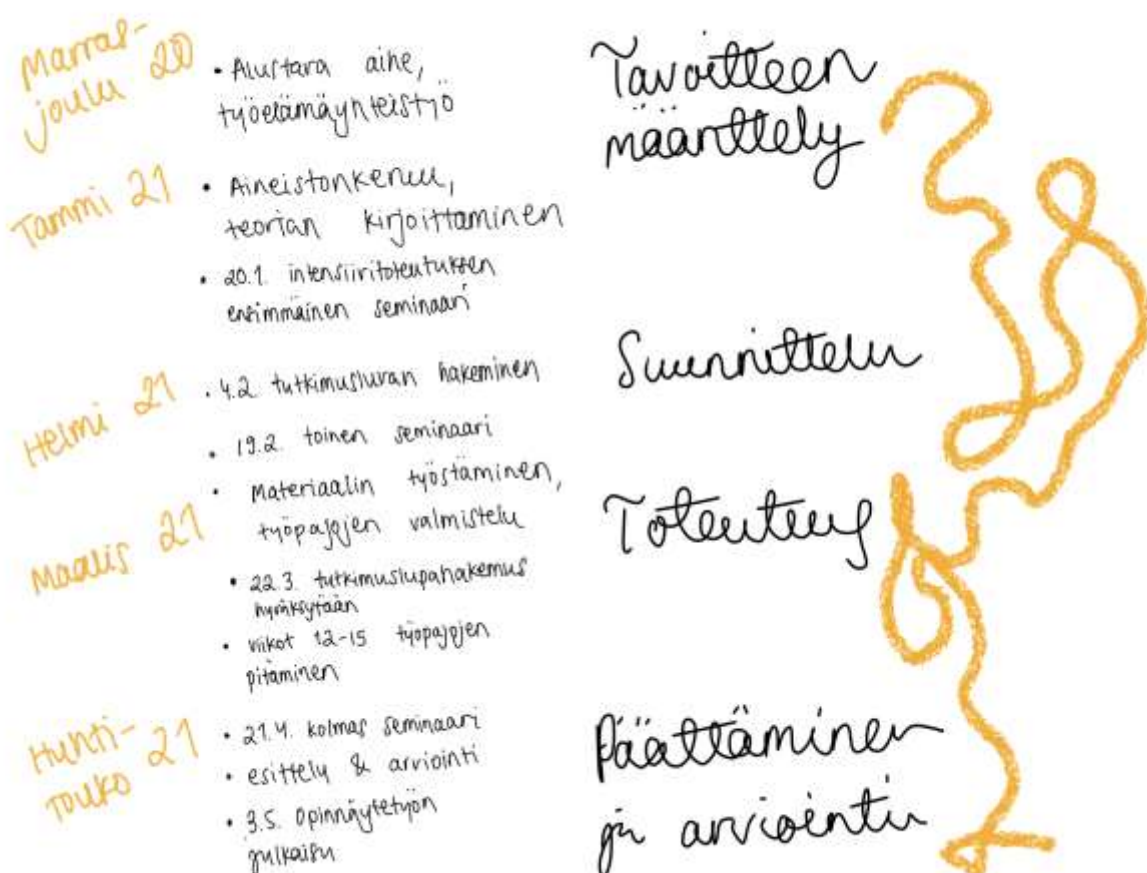 Marras-
joulu 20
• Alustava aihe,
työelämäyhteistyö
Tavoitteen
määrittely
Tammi 21
• Aineistonkeruu,
teorian kirjoittaminen
• 20.1. intensiivitoteutuksen
ensimmäinen seminaari
Suunnittelu
Helmi 21
• 4.2. tutkimusluvan hakeminen
• 19.2. toinen seminaari
Maalis 21
• Materiaalin työstäminen,
työpajojen valmistelu
• 22.3. tutkimuslupahakemus
hyväksytään
• viikot 12-15 työpajojen
pitäminen
Toteutus
Huhti-
touko 21
• 21.4. kolmas seminaari
• esittely & arviointi
• 3.5. Opinnäytetyön
julkaisu
Päättäminen
ja arviointi